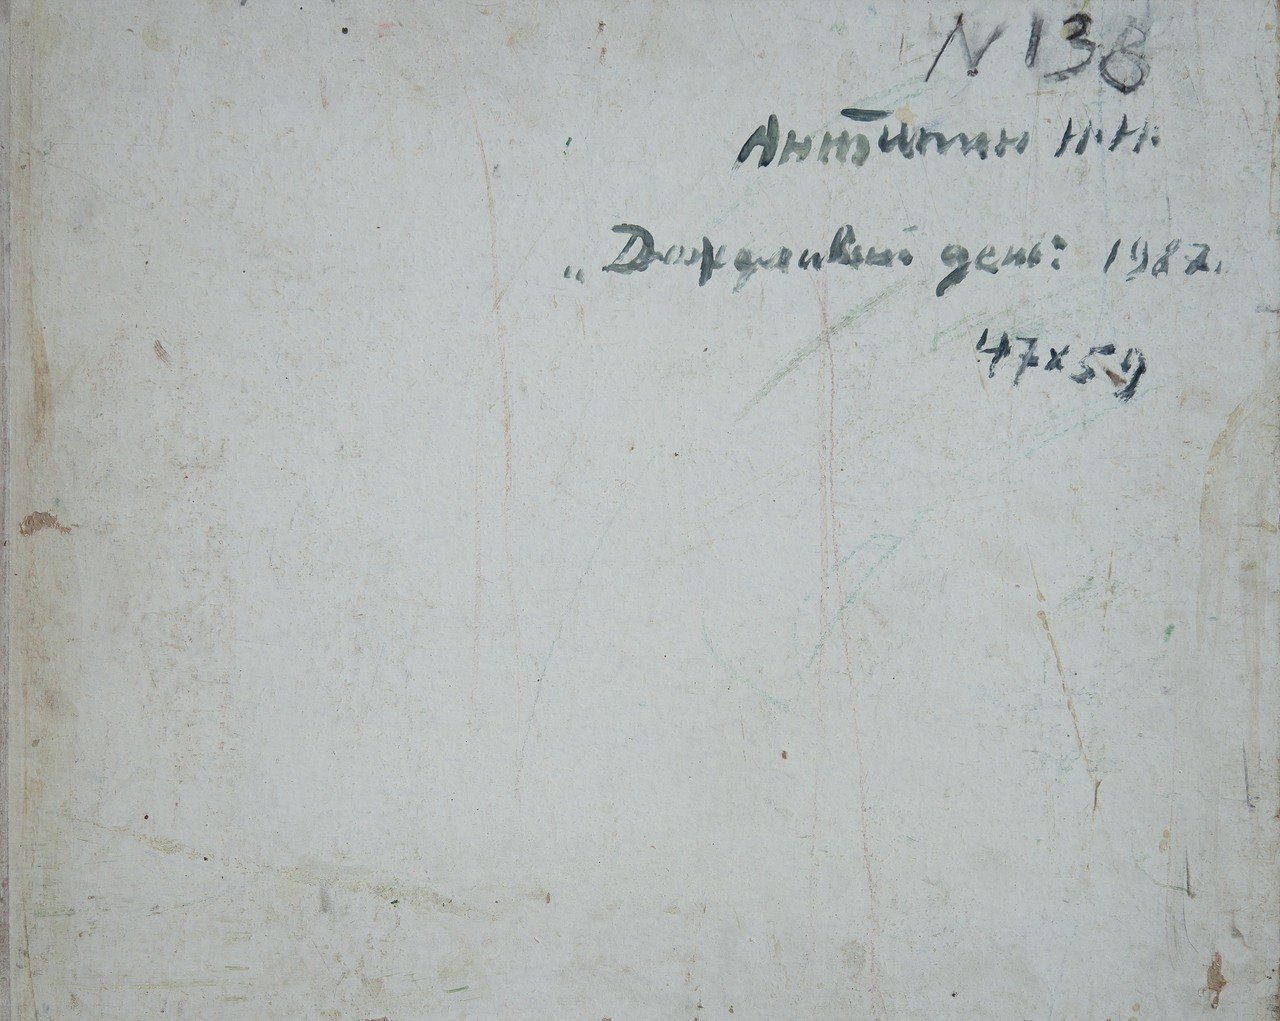 N 138
Антипин Н.Н.
„Дождливый день" 1987.
47x59